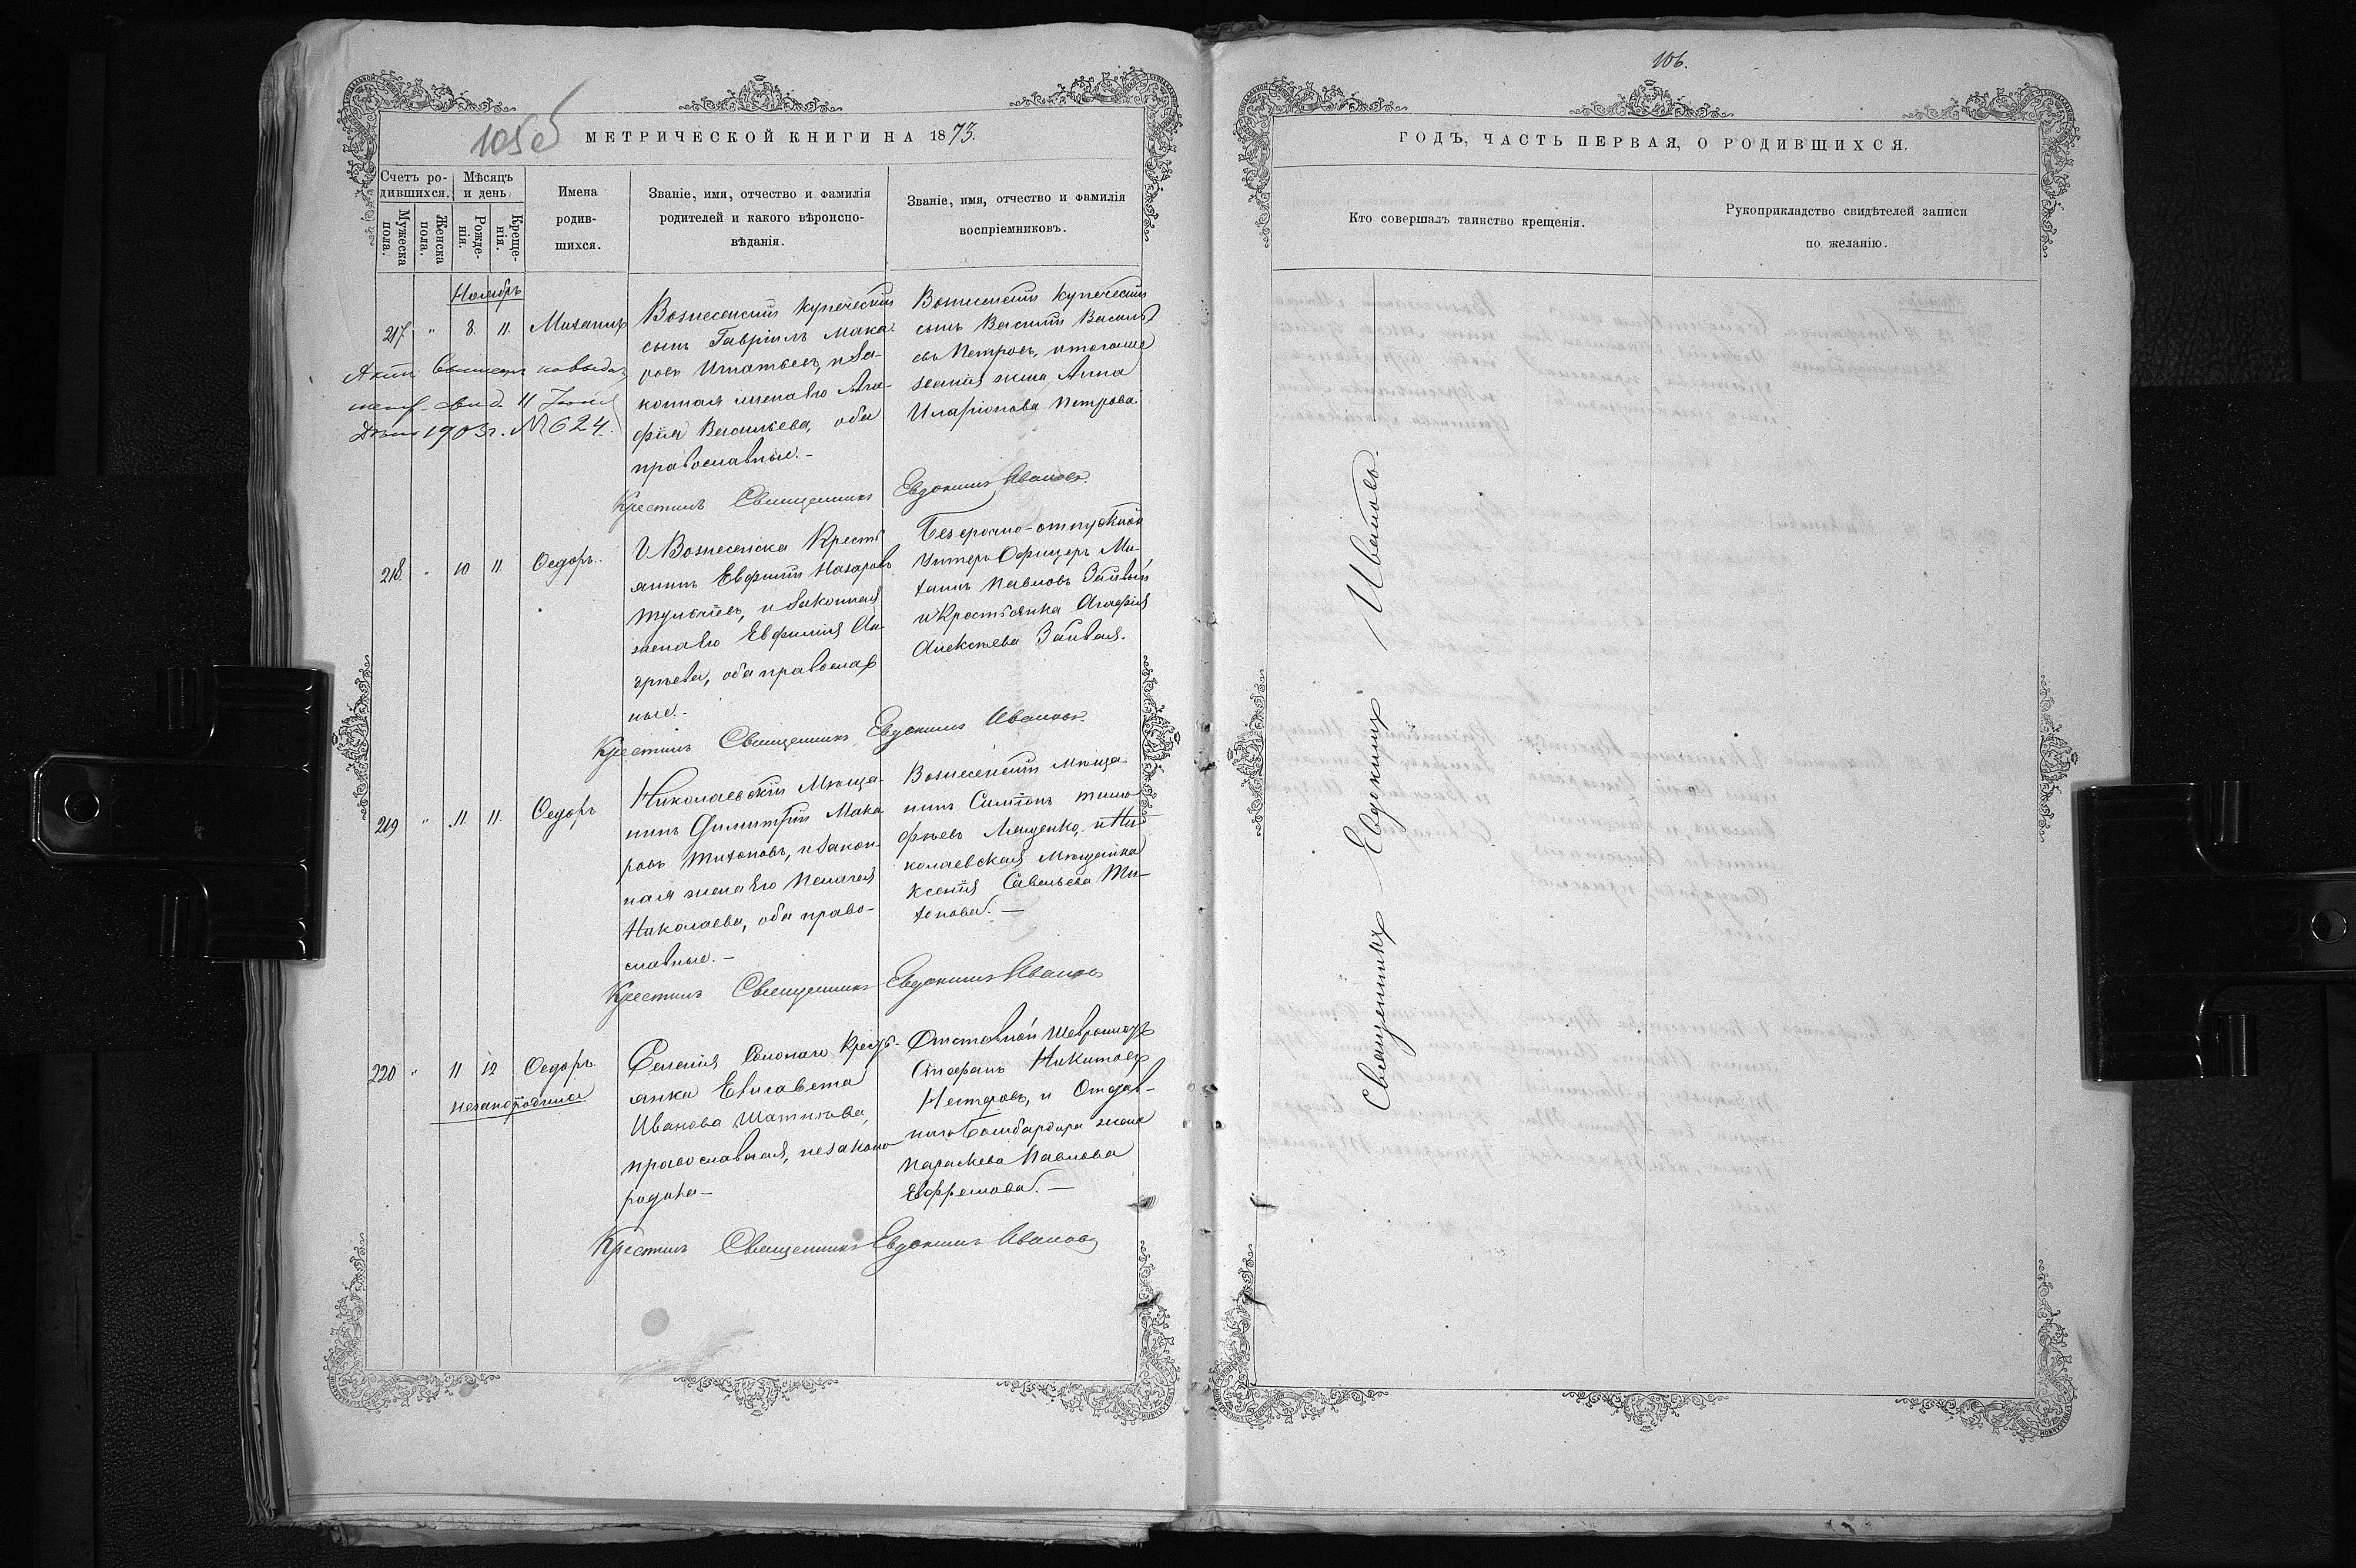 105 об
МЕТРИЧЕСКОЙ КНИГИ НА 1873.
Счетъ ро-
дившихся.
Мѣсяцъ
и день
Мужеска
пола.
Женска
пола.
Рожде-
нія.
Креще-
нія.
Имена
родив-
шихся.
Званіе, имя, отчество и фамилія
родителей и какого вѣроиспо-
вѣданія.
Званіе, имя, отчество и фамилія
воспріемниковъ.
Ноябрь
217. " 8. 11. Михаилъ
Вознесенскій купеческій
сынъ Гавріилъ Мака-
ровъ Игнатьевъ, и за-
конная жена его Ага-
фія Васильева, оба
православные. -
Вознесенскій купеческій
сынъ Василій Василь-
евъ Петровъ, и тогоже
званія жена Анна
Иларіонова Петрова.
метр. свид. 11 Іюня
1903 г. № 624.
Крестилъ Священникъ Евдокимъ Ивановъ.
218. " 10 11. Ѳедоръ.
Г. Вознесенска Кресть-
янинъ Евфимій Назаровъ
и законная
жена его Евфимія Ан-
дреева, оба православ-
ные. -
Безсрочно-отпускной
Унтеръ Офицеръ Ми-
хаилъ Павловъ
и Крестьянка Агафія
Алексѣева
Крестилъ Священникъ Евдокимъ Ивановъ.
219 " 11. 11. Ѳедоръ
Николаевскій Мѣща-
нинъ Димитрій Мака-
ровъ Тихоновъ, и закон-
ная жена его Пелагея
Николаева, оба право-
славные. -
Вознесенскій мѣща-
нинъ Симеонъ Тимо-
фѣевъ Лященко, и Ни-
колаевская Мѣщанка
Ксенія Савельева Ти-
хонова. -
Крестилъ Священникъ Евдокимъ Ивановъ
220 " 11 12 Ѳедоръ
незаконнорожденный
Селенія Солонаго Кресть-
янка Елисавета
Иванова Шатилова,
православная, незаконо-
родила -
Отставной
Стефанъ Никитовъ
Нестеровъ, и Отстав-
наго Бомбардира жена
Параскева Павлова
Ефремова. -
Крестилъ Священникъ Евдокимъ Ивановъ
106.
ГОДЪ, ЧАСТЬ ПЕРВАЯ, О РОДИВШИХСЯ.
Кто совершалъ таинство крещенія.
Рукоприкладство свидѣтелей записи
по желанію.
Священникъ Евдокимъ Ивановъ.